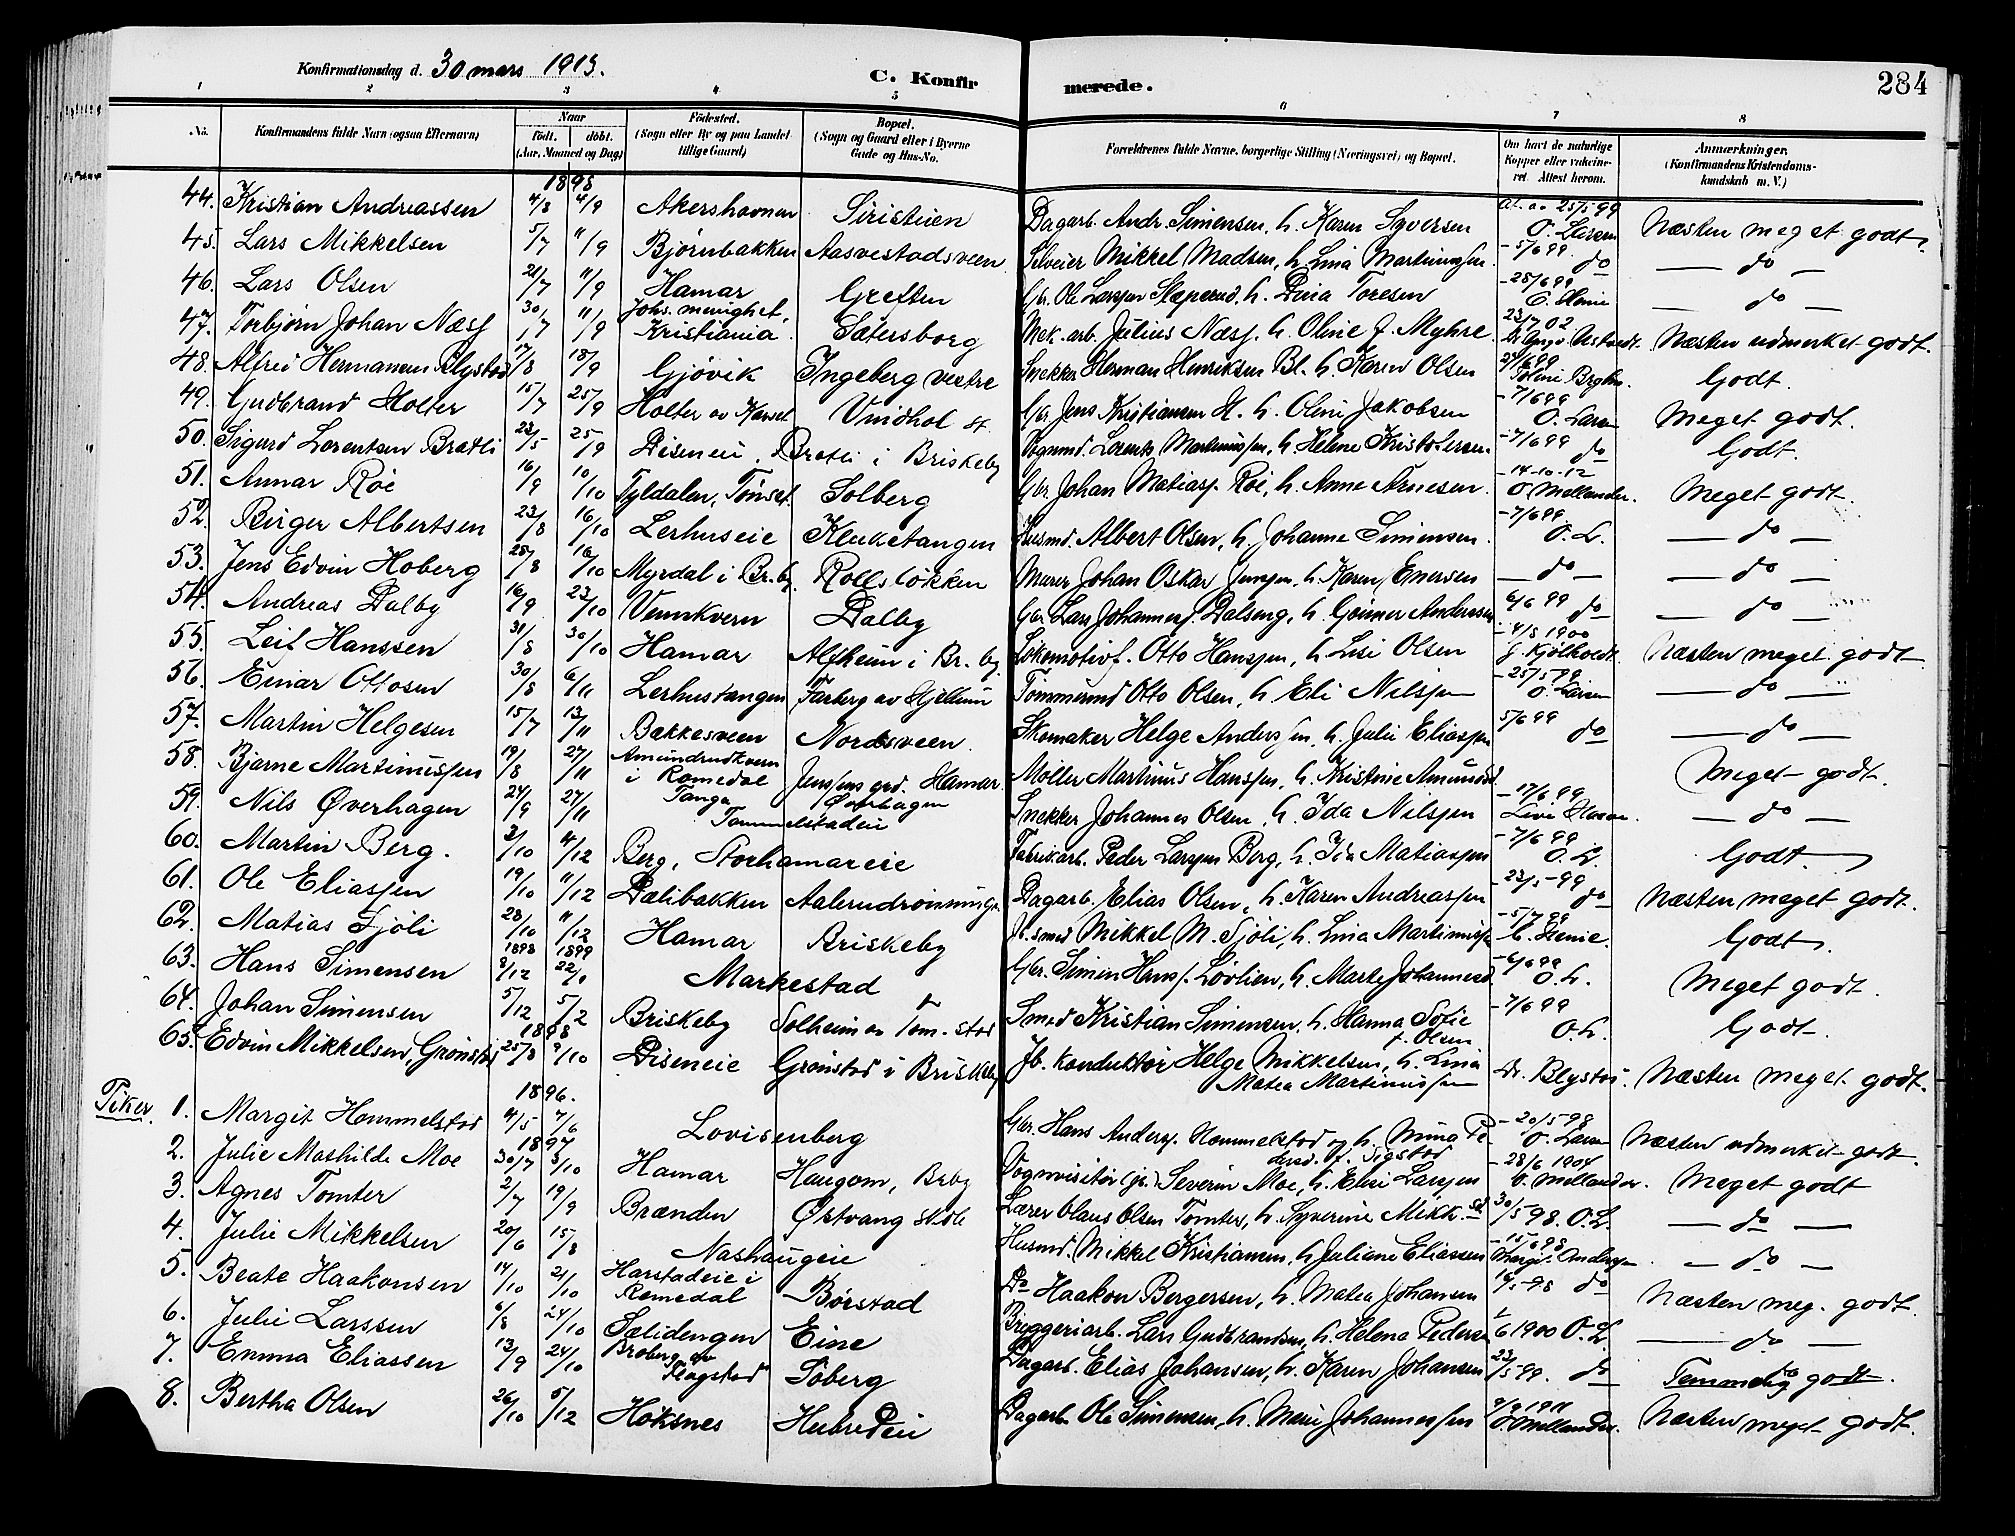 Konfirmationsdag d. 30 mars 1913.
C. Konfirmerede.
284
1 2 3 4 5 6 7 8
No.
Konfirmandens fulde Navn (ogsaa Efternavn)
Naar
født. døbt.
(Aar, Maaned og Dag)
Fødested.
(Sogn eller By og paa Landet tillige Gaard)
Bopæl.
(Sogn og Gaard eller i Byerne Gade og Hus-No.
Forældrenes fulde Navne, borgerlige Stilling (Næringsvei) og Bopæl.
Om havt de naturlige Kopper eller vakcineret. Attest herom.
Anmærkninger.
(Konfirmandens Kristendomskundskab m. V.)
1898
44. Kristian Andreassen 4/8 4/9 Akershavnen Siristuen Dagarb. Andr. Simensen, h. Karen Syversen 25/5 99 O. Larsen Næsten meget godt.
45. Lars Mikkelsen 5/7 11/9 Bjørnbakken Aasvestadsveen Selveier Mikkel Madsen, h. Lina Martinussen - 5/6 99 do — do —
46. Lars Olsen 21/7 11/9 Hamar Greften Gbr. Ole Larssen Slæperud, h. Dina Toresen - 28/6 99 — do —
47. Torbjørn Johan Næss 30/7 11/9 Johs. menighet, Kristiania Sætersborg Mek. arb. Julius Næss, h. Oline f. Myhre 23/7 02 Næsten udmerket godt.
48. Alfred Hermansen Blystad 17/8 18/9 Gjøvik Ingeberg vestre Snekker Herman Henriksen Bl. h. Karen Olsen 27/6 99 Godt.
49. Gudbrand Holter 15/7 25/9 Holter av Vindhol st. Gbr. Jens Kristiansen H. h. Oline Jakobsen - 7/6 99 O. Larsen Meget godt.
50. Sigurd Lorentsen Bratli 23/5 25/9 Diseneie Bratli i Briskeby Vognmd. Lorents Martinussen, h. Helene Kristofersen - 7/6 99 do Godt.
51. Annar Røe 16/9 10/10 Tyldalen, Tønset Solberg Gbr. Johan Matiass. Røe, h. Anne Arnesen - 14-10-12 O Mellander. Meget godt.
52. Birger Albertsen 23/8 16/10 Lerhuseie Kluketangen Husmd. Albert Olsen, h. Johanne Simensen - 7/6 99 O. L. — do —
53. Jens Edvin Hoberg 28/8 16/10 Myrdal i Br.by. Rollsløkken Murer Johan Oskar Jenssen, h. Karen Enersen — do — — do —
54. Andreas Dalby 16/9 23/10 Vennkvern Dalby Gbr. Lars Johanness. Dalseng, h. Gunner Anderssen 6/6 99 do — do —
55. Leif Hanssen 31/8 30/10 Hamar Alfheim i Br. by. Lokomotivf. Otto Hanssen, h. Lisi Olsen - 4/8 1900 Næsten meget godt
56. Einar Ottosen 30/8 6/11 Lerhustangen Farberg av Hjellum Tømmermd Otto Olsen, h. Eli Nilssen - 25/5 99 O. Larsen — do —
57. Martin Helgesen 15/7 13/11 Bækkesveen Nordsveen. Skomaker Helge Anderssen, h. Julie Eliassen 5/6 99 do — do —
58. Bjarne Martinussen 19/8 27/11 Amundrudkvern i Romedal Jenssens grd. Hamar. Møller Martinus Hanssen, h. Kristine Amundsd. Meget godt.
59. Nils Øverhagen 24/9 27/11 Tanga Øverhagen Tommelstadeie Snekker Johannes Olsen, h. Ida Nilssen - 17/6 99 — do —
60. Martin Berg. 3/10 4/12 Berg, Storhamareie Fabrikarb. Peder Larssen Berg, h. Ida Matiassen - 7/6 99 O. L. Godt
61. Ole Eliassen 19/10 11/12 Dælibakken Aalerudrønningen Dagarb. Elias Olsen, h. Karen Andreassen - 23/5-99 do Næsten meget godt.
62. Matias Sjøli 23/10 11/12 Hamar Briskeby Jb. smed Mikkel M. Sjøli, h. Lina Martinussen - 5/7 99 Godt.
1898 1899
63. Hans Simensen 8/12 22/1 Markestad Gbr. Simen Hanss. Løvlien, h. Marte Johannesd. - 6/6 99 O. L. Meget godt.
64. Johan Simensen 5/12 5/2 Briskeby Solheim av Tom-stad Smed Kristian Simensen, h. Hanna Sofie f. Olsen - 7/6 99 O. L. Godt.
1898
65. Edvin Mikkelsen Grønstad 25/8 9/10 Diseneie Grønstad i Briskeby Jb. konduktør Helge Mikkelsen, h. Lina Matea Martinussen Dr. Blystad. Næsten meget godt.
Piker.
1896.
1. Margit Hommelstad 4/5 7/6 Lovisenberg Gbr. Hans Anderss. Hommelstad og h. Mina Pedersd. f. Sigstad - 20/5-98 O. Larsen Næsten udmerket godt.
1897
2. Julie Mathilde Moe 30/7 3/10 Hamar Haugom, Brby Vognvisitør (js.) Severin Moe, h. Elise Larssen - 28/6 1904 O. Mellander. Meget godt
3. Agnes Tomter 2/7 19/9 Brænden Østvang skole Lærer Olaus Olsen Tomter, h. Syverine Mikk.sd. 30/5 98. O. L. — do —
4. Julie Mikkelsen 20/6 15/8 Nashaugeie Husmd. Mikkel Kristiansen, h. Juliane Eliassen - 15/6 98 Margit Anderssen — do —
5. Beate Haakonsen 14/10 21/10 Harstadeie i Romedal Børstad Do Haakon Bergersen, h. Matea Johansen 16/5-98 do Næsten meg. godt.
6. Julie Larssen 6/8 24/10 Sælidengen Eine Bryggeriarb. Lars Gudbrandsen, h. Helena Pedersen 1/6 1900 O. L. — do —
7. Emma Eliassen 13/9 24/10 Broberg av Flagstad Søberg Dagarb. Elias Johansen, h. Karen Johansen 23/5 99. do Temmelig godt.
8. Bertha Olsen 26/10 5/12 Høksnes Hubredeie Dagarb. Ole Simensen, h. Marie Johannessen 9/9 1911 O. Mellander. Næsten meget godt.